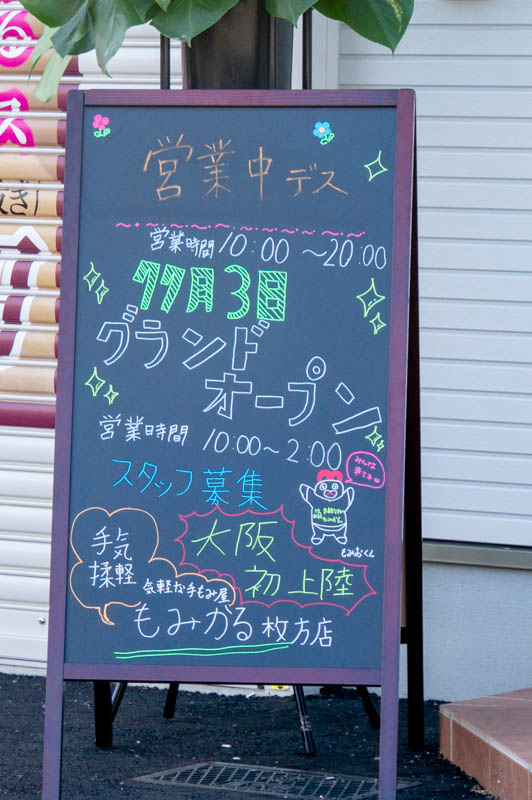 営業中デス
営業時間 10:00 〜20:00
11月3日
グランド
オープン
営業時間 10:00〜2:00
スタッフ募集
みんな
来てネ
もみおくん
手気
揉軽
大阪
初上陸
気軽な手もみ屋
もみかる 枚方店